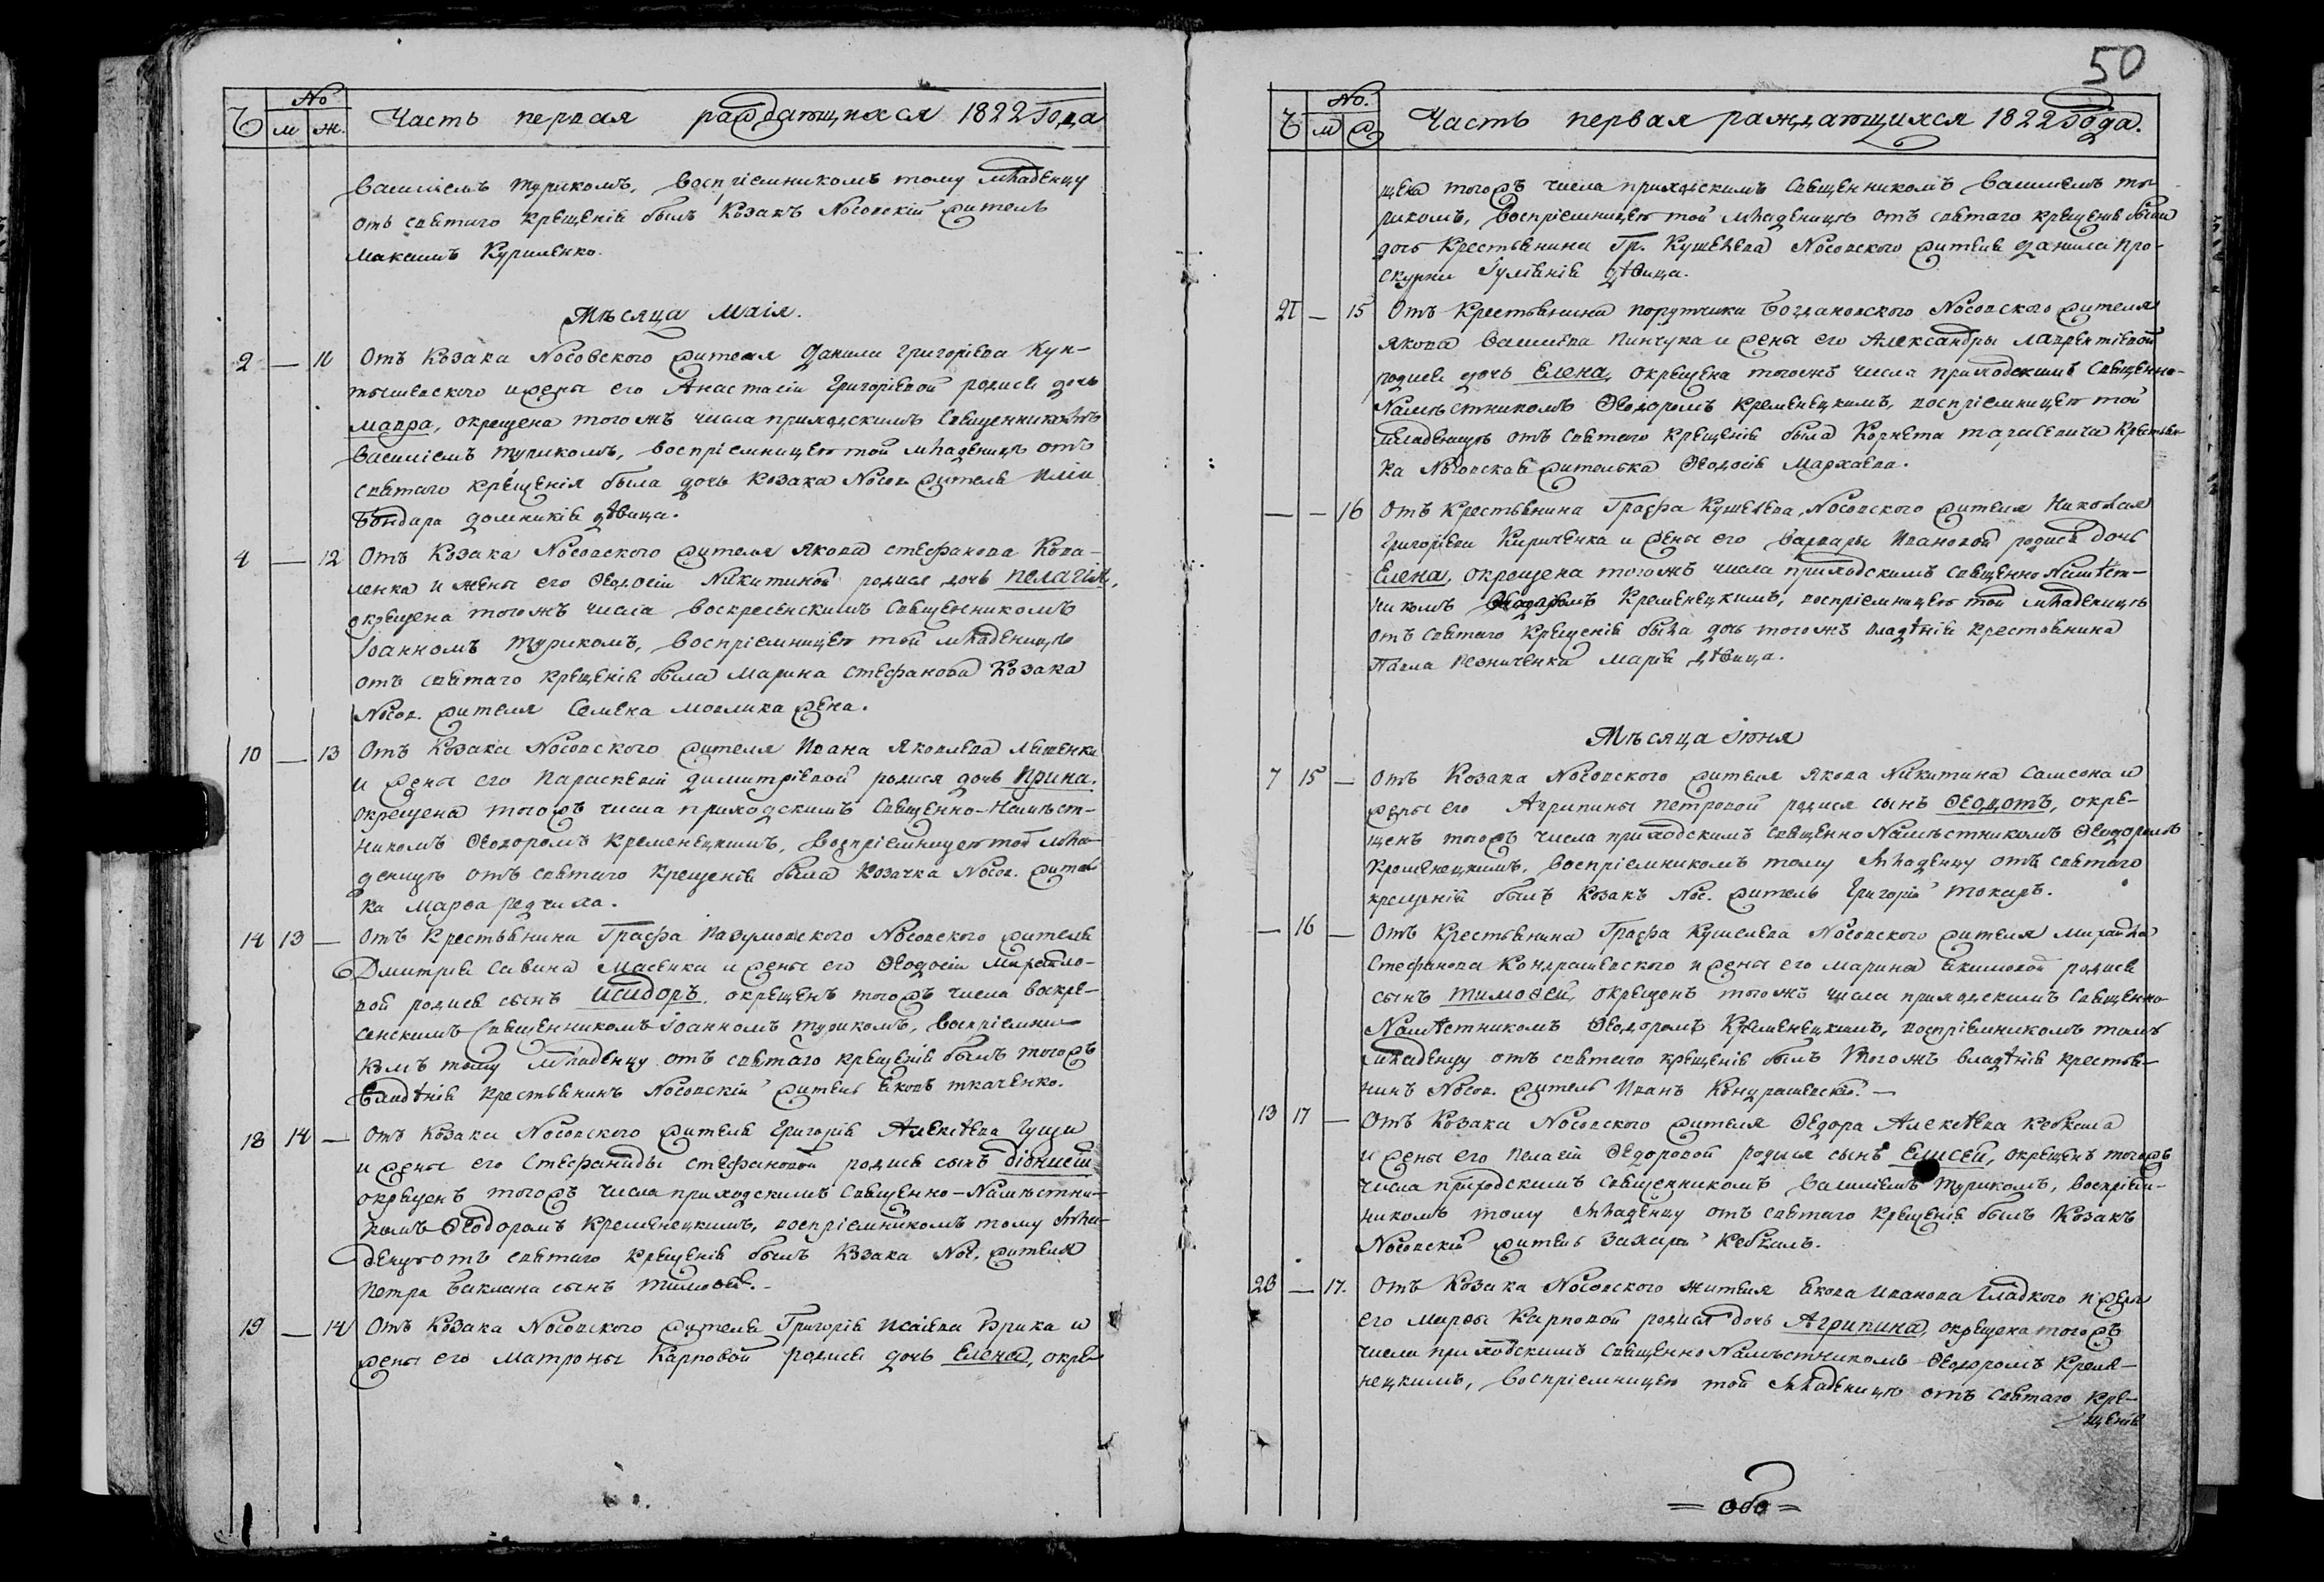 Ч № м ж. Часть первая раждающихся 1822 Года
василіемъ туриком, воспріемникомъ тому младенцу
отъ святаго крещенія былъ Козакъ Носовскій житель
Максимъ Куриленко.
Мѣсяца Маія.
2 — 11 Отъ Козака Носовского жителя Данила Григоріева Кун-
и жены его Анастасіи Григоріевой родися дочь
Мавра, окрещена того жъ числа приходскимъ Священникомъ
Василіемъ Туриком, воспріемницею той младеницѣ отъ
святаго крещенія была дочь Козака Носов. жителя Иліи
Бондара Домникія дѣвица.
4 — 12 Отъ Козака Носовского жителя Якова Стефанова Кова-
ленка и жены его Ѳеодосіи Никитиной родися дочь Пелагія,
окрещена того жъ числа воскресенскимъ Священникомъ
Іоанномъ Туриком, воспріемницею той младеницѣ
отъ святаго крещенія была Марина Стефанова Козака
Носов. жителя Семена жена.
10 — 13 Отъ Козака Носовского жителя Ивана Яковлева
и жены его Параскевіи Димитріевой родися дочь Ирина,
окрещена тогожъ числа приходскимъ Священно-Намѣст-
никомъ Ѳеодоромъ Кременецкимъ, воспріемницею той мла-
деницѣ отъ святаго крещенія была Козачка Носов. житель
ка Марѳа
14 13 — Отъ Крестьянина Графа Разумовского Носовского жителя
Дмитрія Савина и жены его Ѳеодосіи Михайло-
вой родися сынъ Исидоръ, окрещенъ тогожъ числа воскре-
сенскимъ Священникомъ Іоанномъ Туриком, воспріемни-
комъ тому младенцу отъ святаго крещенія былъ тогожъ
владѣнія крестьянинъ Носовскій житель Яковъ Ткаченко.
18 14 — Отъ Козака Носовского жителя Григорія Алексѣева Гущи
и жены его Стефаниды Стефановой родися сынъ Діонисій
окрещенъ тогожъ числа приходскимъ Священно-Намѣстни-
комъ Ѳеодоромъ Кременецкимъ, воспріемникомъ тому мла-
денцу отъ святаго крещенія былъ Козака Нос. жителя
Петра Баклана сынъ Тимоѳей.
19 — 14 Отъ Козака Носовского жителя Григорія Исаіева и
жены его Матроны Карповой родися дочь Елена, окре-
50
Ч № м ж Часть первая раждающихся 1822 Года.
щена тогожъ числа приходскимъ Священникомъ Василіемъ Ту-
риком, воспріемницею той младеницѣ отъ святаго крещенія была
дочь Крестьянина Гр. Кушелева Носовского жителя Данила Про-
скурни Іуліянія дѣвица.
21 — 15 Отъ Крестьянина порутчика Богдановского Носовского жителя
Якова Василіева Пинчука и жены его Александры Лаврентіевой
родися дочь Елена, окрещена тогожъ числа приходскимъ Священно-
Намѣстникомъ Ѳеодоромъ Кременецкимъ, воспріемницею той
младеницѣ отъ святаго крещенія была Корнета Тарасевича Крестьян-
ка Носовская жителька Ѳеодосія
— — 16 Отъ Крестьянина Графа Кушелева, Носовского жителя Николая
Григоріева Кириченка и жены его Варвары Ивановой родися дочь
Елена, окрещена тогожъ числа приходскимъ Священно Намѣст-
никомъ Ѳеодоромъ Кременецкимъ, воспріемницею той младеницѣ
отъ святаго крещенія была дочь тогожъ владѣнія крестьянина
Павла Резниченка Марія дѣвица.
Мѣсяца Іюня
7 15 — Отъ Козака Носовского жителя Якова Никитина Самсона и
жены его Агрипины Петровой родися сынъ Ѳеодотъ, окре-
щенъ тогожъ числа приходскимъ Священно Намѣстникомъ Ѳеодоромъ
Кременецкимъ, воспріемникомъ тому младенцу отъ святаго
крещенія былъ Козакъ Нос. житель Григорій Токарь.
— 16 — Отъ Крестьянина Графа Кушелева Носовского жителя Михайла
Стефанова Кондрашевского и жены его Марины Екимовой родися
сынъ Тимоѳей, окрещенъ тогожъ числа приходскимъ Священно-
Намѣстникомъ Ѳеодоромъ Кременецкимъ, воспріемникомъ тому
младенцу отъ святаго крещенія былъ тогожъ владѣнія крестья-
нинъ Носов. житель Иванъ Кондрашевскій. —
13 17 — Отъ Козака Носовского жителя Ѳедора Алексѣева Кебкала
и жены его Пелагіи Ѳедоровой родися сынъ Елисей, окрещенъ тогожъ
числа приходскимъ Священникомъ Василіемъ Туриком, воспріем-
никомъ тому младенцу отъ святаго крещенія былъ Козакъ
Носовскій житель Захарій Кебкалъ.
23 — 17. Отъ Козака Носовского жителя Якова Иванова Гладкого и жены
его Марѳы Карповой родися дочь Агрипина, окрещена тогожъ
числа приходскимъ Священно Намѣстникомъ Ѳеодоромъ Креме-
нецкимъ, воспріемницею той младеницѣ отъ святаго кре-
щенія